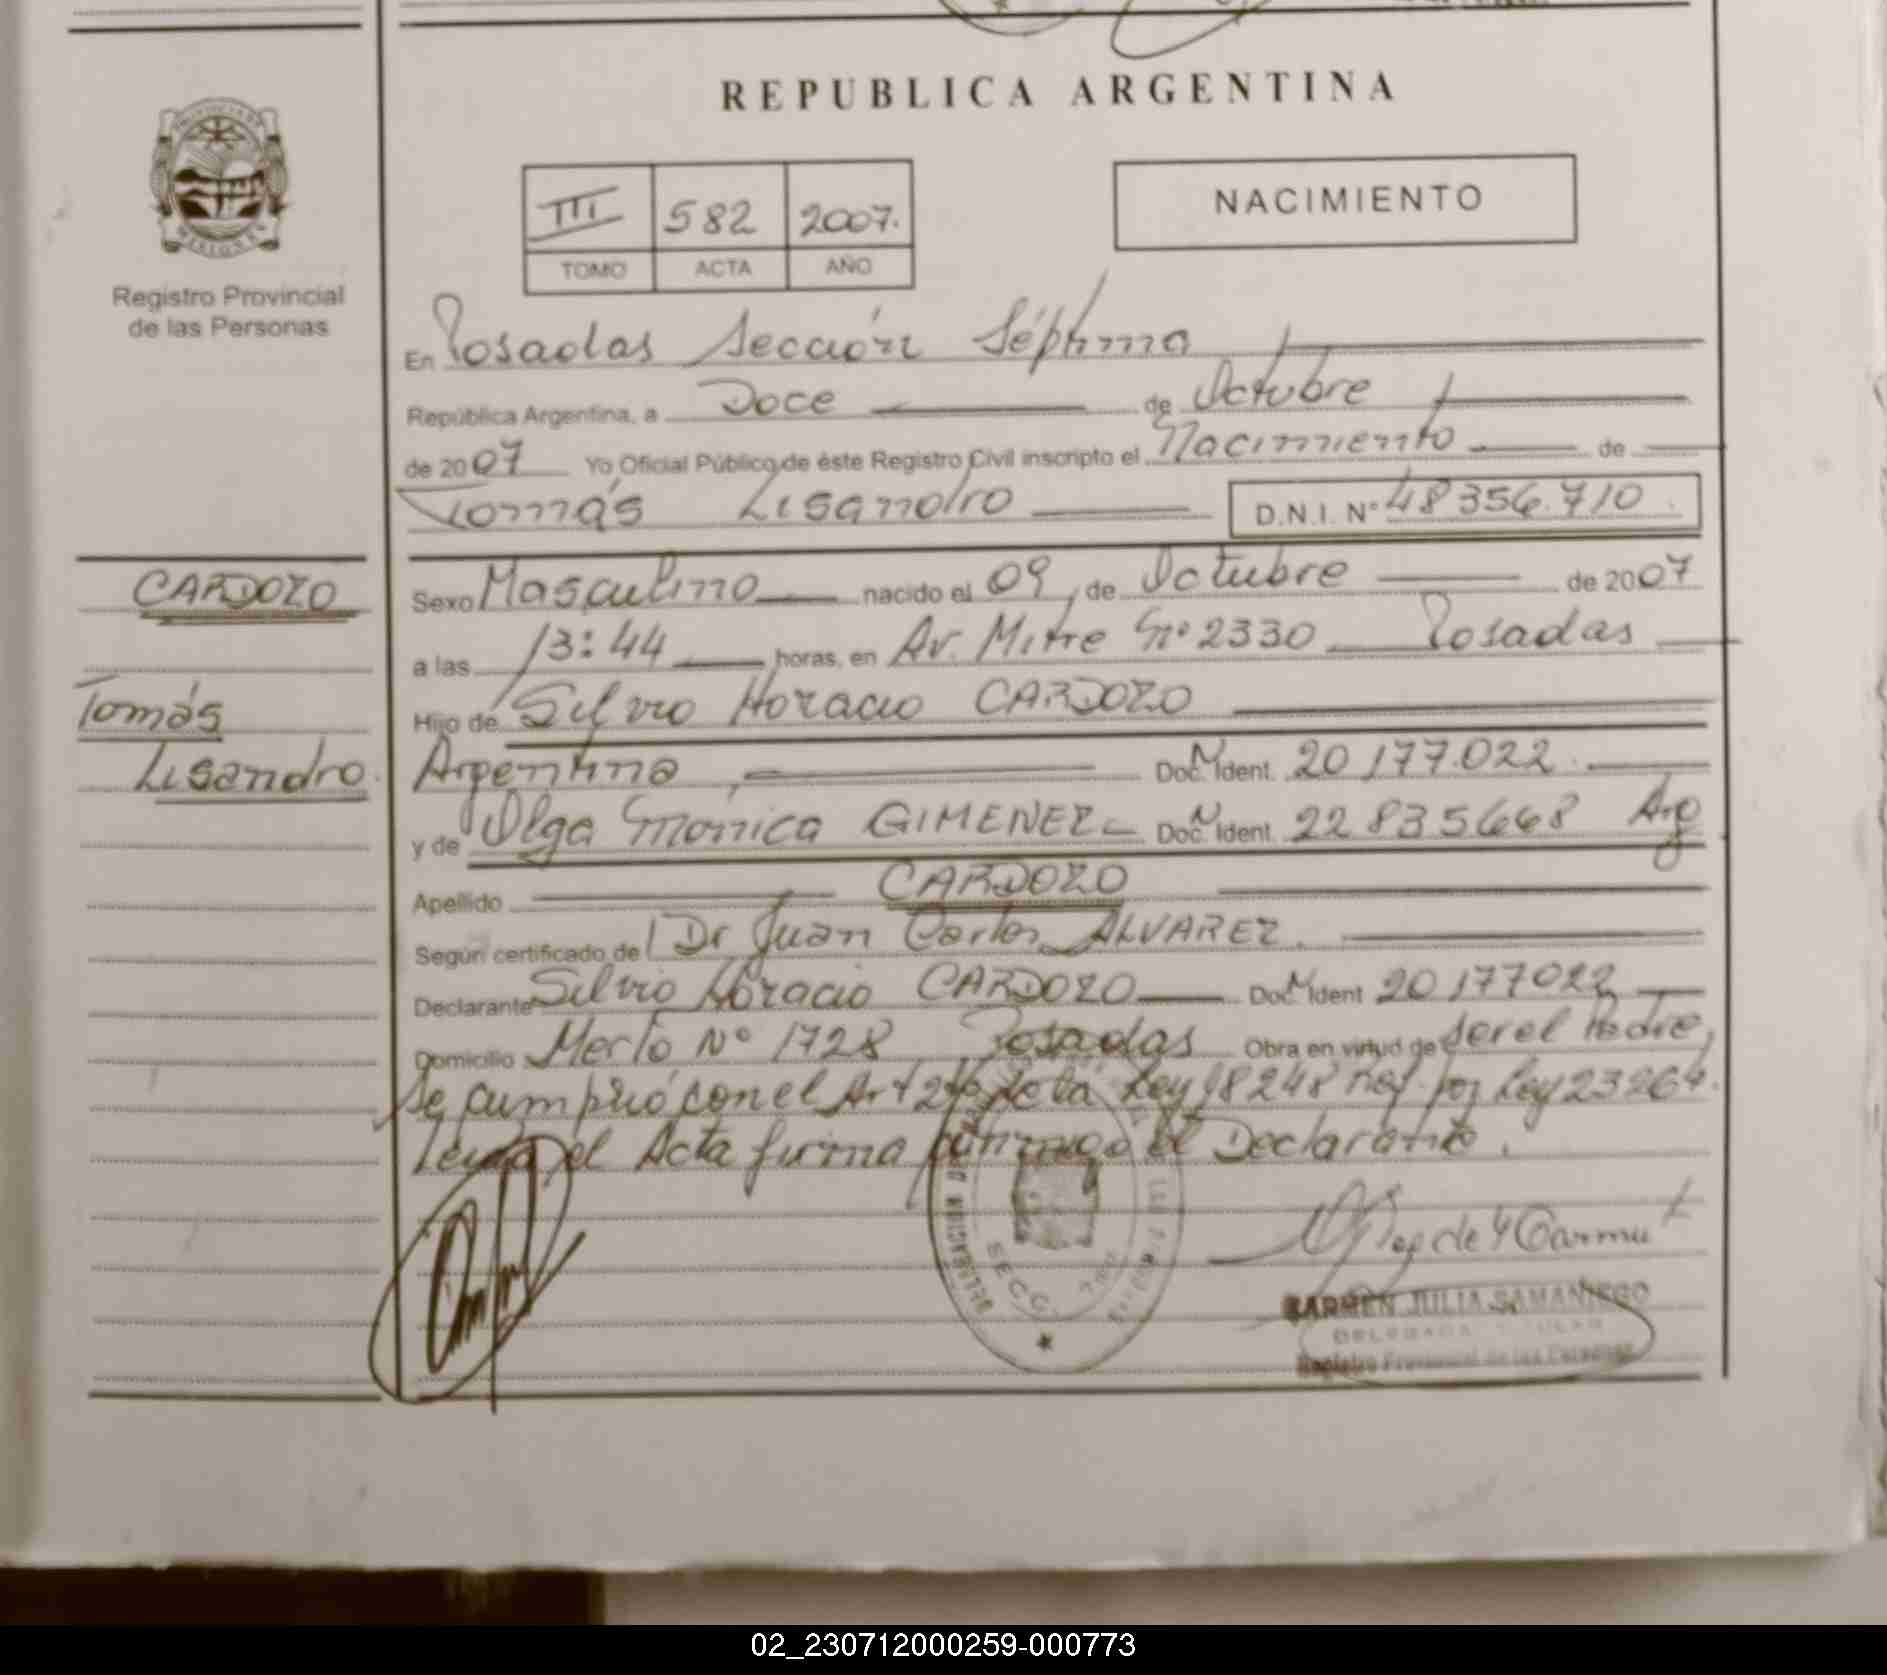 REPUBLICA ARGENTINA
III 582 2007.
TOMO ACTA AÑO
NACIMIENTO
Registro Provincial
de las Personas
En Posadas Sección Séptima
República Argentina, a Doce de Octubre
de 2007 Yo Oficial Público de éste Registro Civil inscripto el Nacimiento de
Tomás Lisandro D.N.I. Nº 48356.710
CARDOZO
Tomás
Lisandro.
Sexo Masculino nacido el 09 de Octubre de 2007
a las 13:44 horas, en Av. Mitre Nº 2330 Posadas
Hijo de Silvio Horacio CARDOZO
Argentina, Doc. Ident. 20177.022.
y de Olga Mónica GIMENEZ Doc. Ident. 22835668 Arg
Apellido CARDOZO
Según certificado de Dr Juan Carlos ALVAREZ.
Declarante Silvio Horacio CARDOZO Doc. Ident 20177022
Domicilio Merlo Nº 1728 Posadas Obra en virtud de ser el Padre,
Se cumplió con el Art 2º de la Ley 18248 Ref. por Ley 23264.
Leída el Acta firma conmigo el Declarante.
SECC.
CARMEN JULIA SAMANIEGO
DELEGADA TITULAR
Registro Provincial de las Personas
02_230712000259-000773